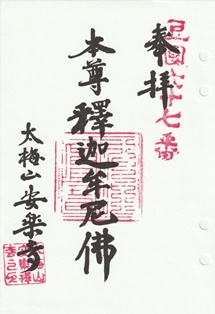 豆國六十七番
奉拝
本尊釋迦牟尼佛
太梅山安楽寺